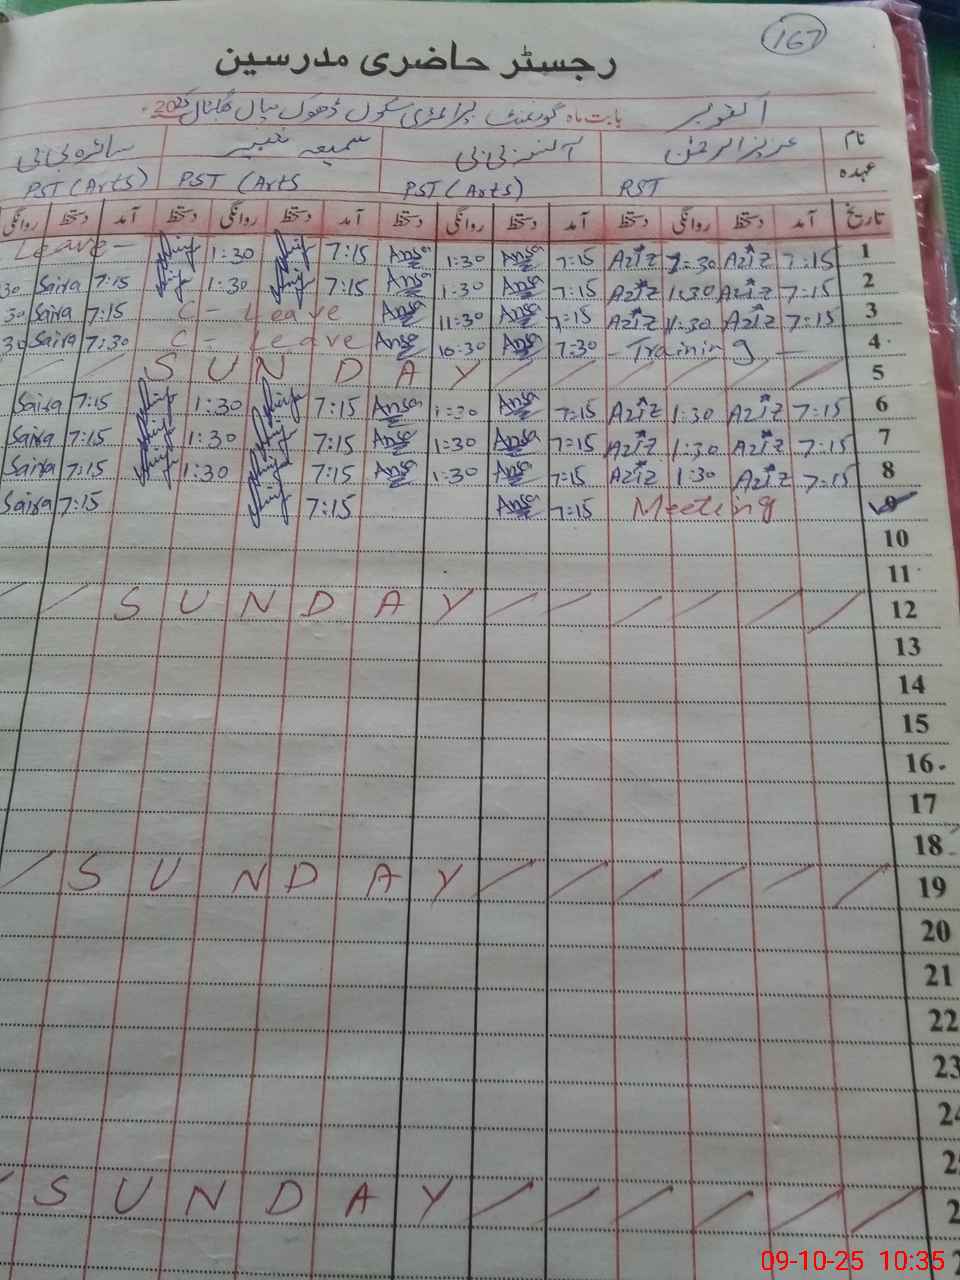 167
رجسٹر حاضری مدرسین
بابت ماہ اکتوبر گورنمنٹ پرائمری سکول ڈھوک 2025
نام عزیزالرحمٰن سمیعہ سائرہ بی بی
عہدہ RST PST (Arts) PST (Arts PST (Arts)
تاریخ آمد دستخط روانگی دستخط آمد دستخط روانگی دستخط آمد دستخط روانگی دستخط آمد دستخط روانگی
1 7:15 Aziz 1:30 Aziz 7:15 Ansa 1:30 Ansa 7:15 1:30 Leave -
2 7:15 Aziz 1:30 Aziz 7:15 Ansa 1:30 Ansa 7:15 1:30 7:15 Saira 30
3 7:15 Aziz 1:30 Aziz 7:15 Ansa 11:30 Ansa C - Leave 7:15 Saira 30
4 - Training - 7:30 Ansa 10:30 Ansa C - Leave 7:30 Saira 30
5 S U N D A Y
6 7:15 Aziz 1:30 Aziz 7:15 Ansa 1:30 Ansa 7:15 1:30 7:15 Saira
7 7:15 Aziz 1:30 Aziz 7:15 Ansa 1:30 Ansa 7:15 1:30 7:15 Saira
8 7:15 Aziz 1:30 Aziz 7:15 Ansa 1:30 Ansa 7:15 1:30 7:15 Saira
9 Meeting 7:15 Ansa 7:15 7:15 Saira
10
11
12 S U N D A Y
13
14
15
16
17
18
19 S U N D A Y
20
21
22
23
24
2
S U N D A Y 2
09-10-25 10:35